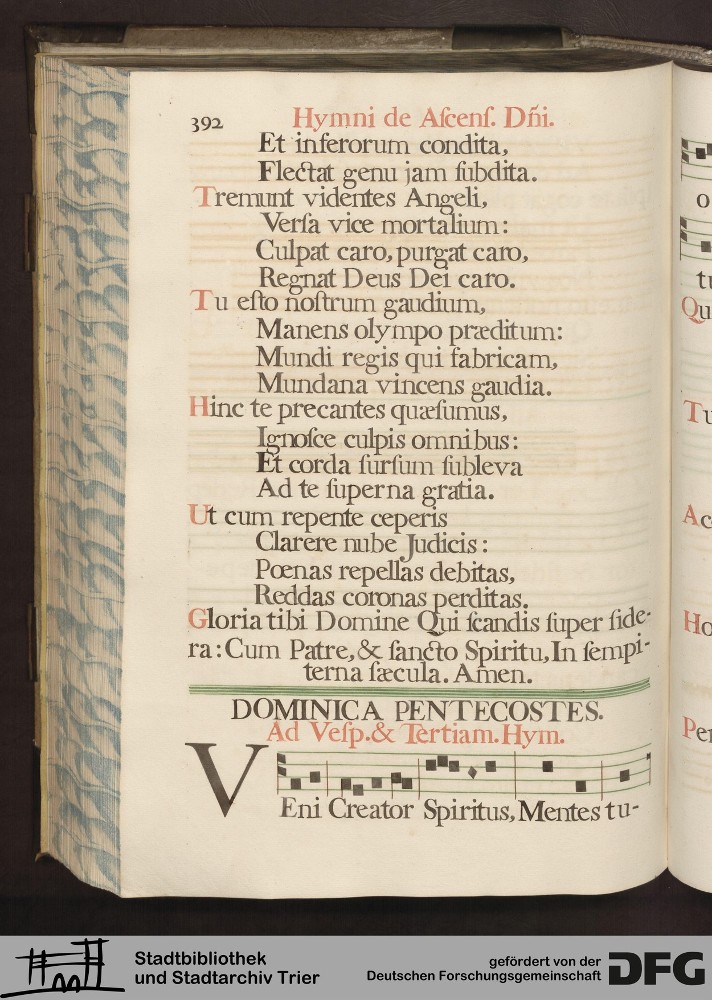 392 Hymni de Aſcenſ. Dñi.
Et inferorum condita,
Flectat genu jam ſubdita.
Tremunt videntes Angeli,
Verſa vice mortalium:
Culpat caro, purgat caro,
Regnat Deus Dei caro.
Tu eſto noſtrum gaudium,
Manens olympo præditum:
Mundi regis qui fabricam,
Mundana vincens gaudia.
Hinc te precantes quæſumus,
Ignoſce culpis omnibus:
Et corda ſurſum ſubleva
Ad te ſuperna gratia.
Ut cum repente ceperis
Clarere nube Judicis:
Pœnas repellas debitas,
Reddas coronas perditas.
Gloria tibi Domine Qui ſcandis ſuper ſide-
ra: Cum Patre, & ſancto Spiritu, In ſempi-
terna ſæcula. Amen.
DOMINICA PENTECOSTES.
Ad Veſp. & Tertiam. Hym.
VEni Creator Spiritus, Mentes tu-
o
tu
Qu
Tu
Ac
Ho
Per
Stadtbibliothek
und Stadtarchiv Trier
gefördert von der
Deutschen Forschungsgemeinschaft
DFG